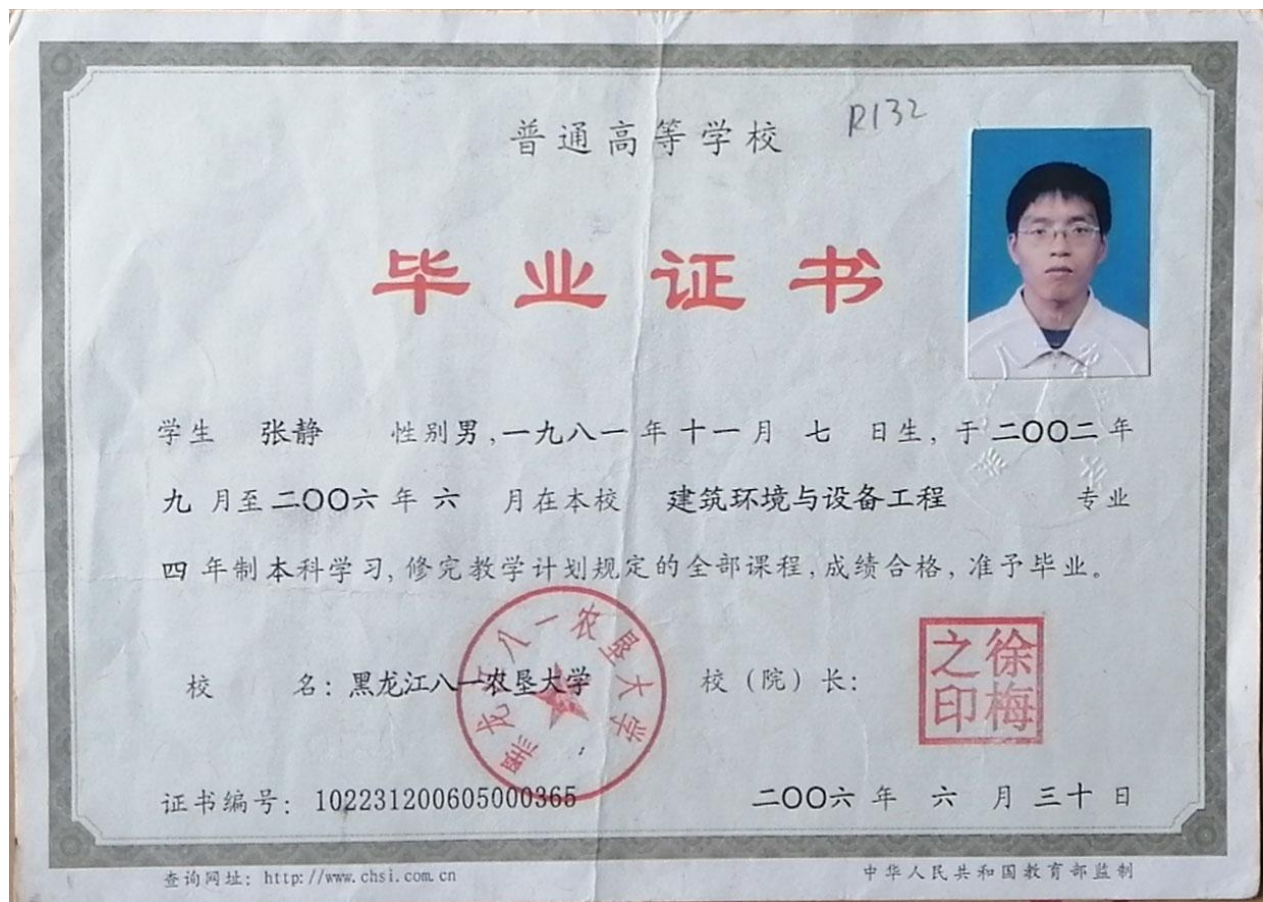 普通高等学校
R132
毕业证书
学生 张静 性别男,一九八一年十一月 七 日生, 于二〇〇二年
九 月至二〇〇六年 六 月在本校 建筑环境与设备工程 专业
四年制本科学习, 修完教学计划规定的全部课程, 成绩合格, 准予毕业。
校 名: 黑龙江八一农垦大学 校(院)长:
黑龙江八一农垦大学
徐梅之印
证书编号: 102231200605000365 二〇〇六 年 六 月 三十 日
查询网址: http://www.chsi.com.cn 中华人民共和国教育部监制